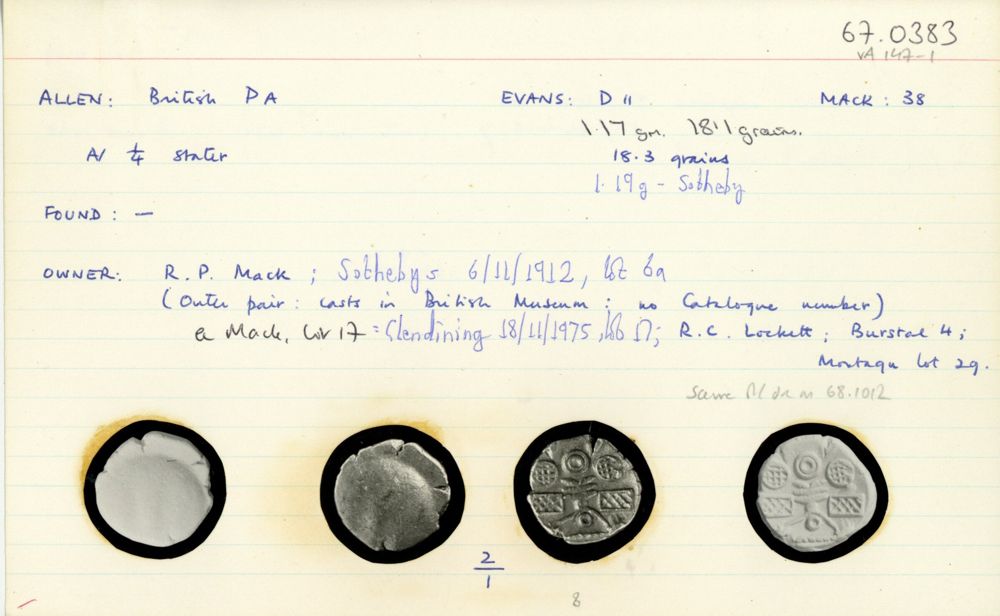 67.0383
VA 147-1
ALLEN: British P A EVANS: D 11 MACK: 38
1.17 gm. 18.1 grains.
AV 1/4 stater 18.3 grains
1.19g - Sotheby
FOUND: —
OWNER: R.P. Mack; Sothebys 6/11/1912, lot 6a
(Outer pair: casts in British Museum; no Catalogue number)
Mack, Lot 17 = Glendining 18/11/1975, lot 17; R.C. Lockett; Burstal 4;
Montagu lot 29.
Same 68.1012
2
1
8